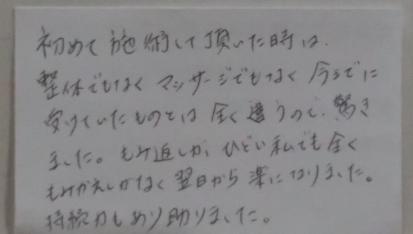 初めて施術して頂いた時は、
整体でもなく マッサージでもなく 今までに
受けていたものとは 全く違うので、驚き
ました。もみ返しが、ひどい私でも全く
もみかえしがなく 翌日から楽になりました。
持続力もあり助りました。